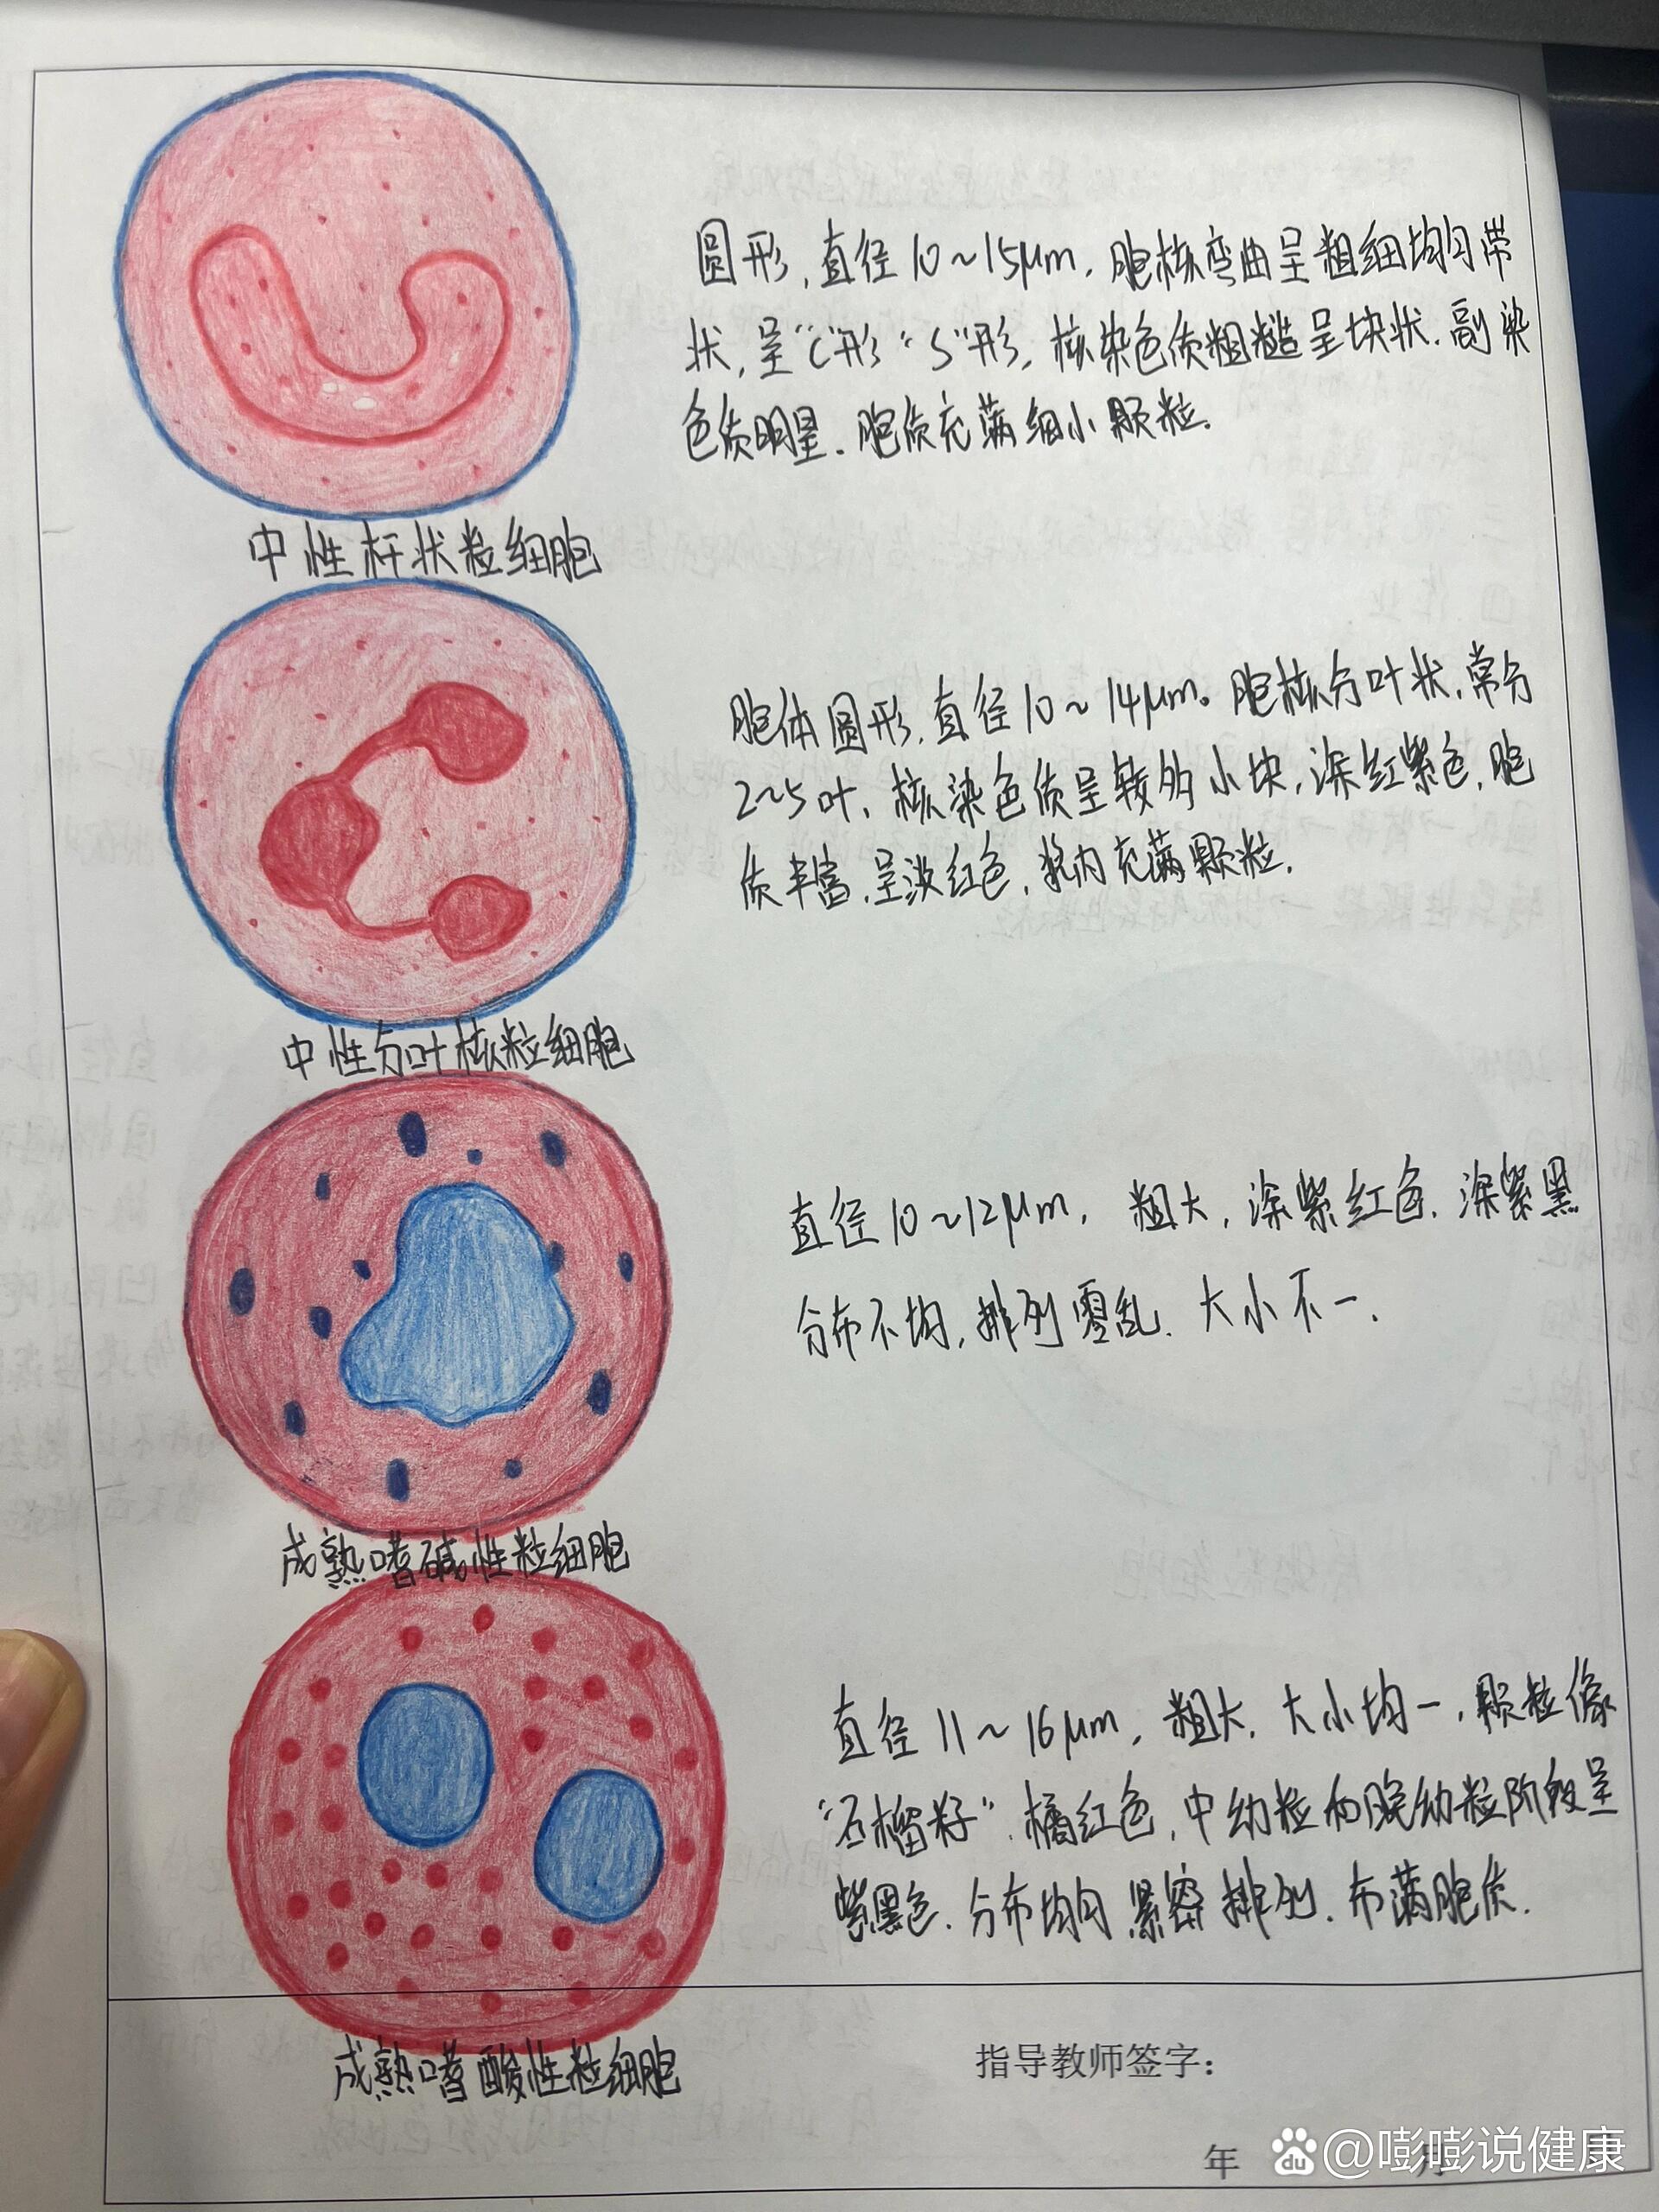 圆形,直径10~15μm,胞核弯曲呈粗细均匀带
状,呈“C”形“S”形,核染色质粗糙呈块状.副染
色质明显.胞质充满细小颗粒.
中性杆状粒细胞
胞体圆形,直径10~14μm。胞核分叶状,常分
2~5叶,核染色质呈较多小块,深红紫色,胞
质丰富,呈淡红色,浆内充满颗粒.
中性分叶核粒细胞
直径10~12μm, 粗大,深紫红色.深紫黑
分布不均,排列零乱.大小不一.
成熟嗜碱性粒细胞
直径11~16μm,粗大,大小均一,颗粒像
“石榴籽”.橘红色,中幼粒和晚幼粒阶段呈
紫黑色.分布均匀 紧密排列.布满胞质.
成熟嗜酸性粒细胞
指导教师签字:
年 月
@嘭嘭说健康